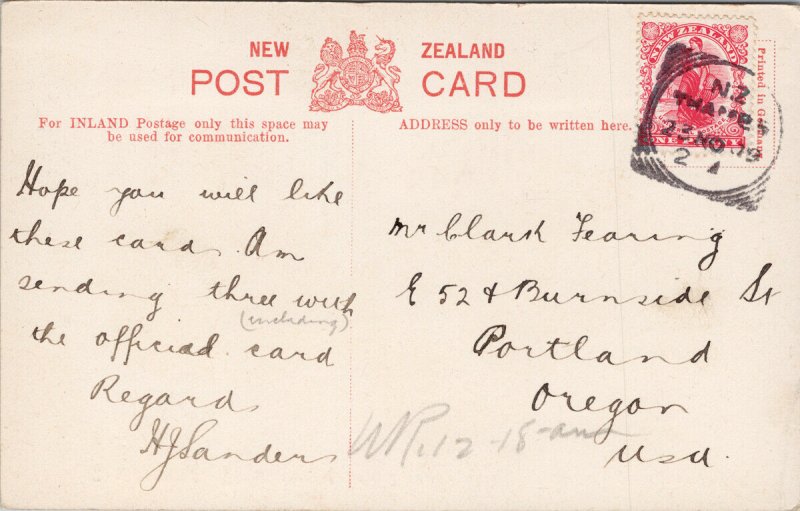 NEW ZEALAND
POST CARD
For INLAND Postage only this space may
be used for communication.
ADDRESS only to be written here.
Printed in Germany
NEW ZEALAND
ONE PENNY
N.Z
THAMES
23 NO 09
2
Hope you will like
these cards. Am
sending three with
(including)
the official card
Regards
HJSanders
Mr Clark Fearing
E 52 & Burnside St
Portland
Oregon
USA.
12-18-